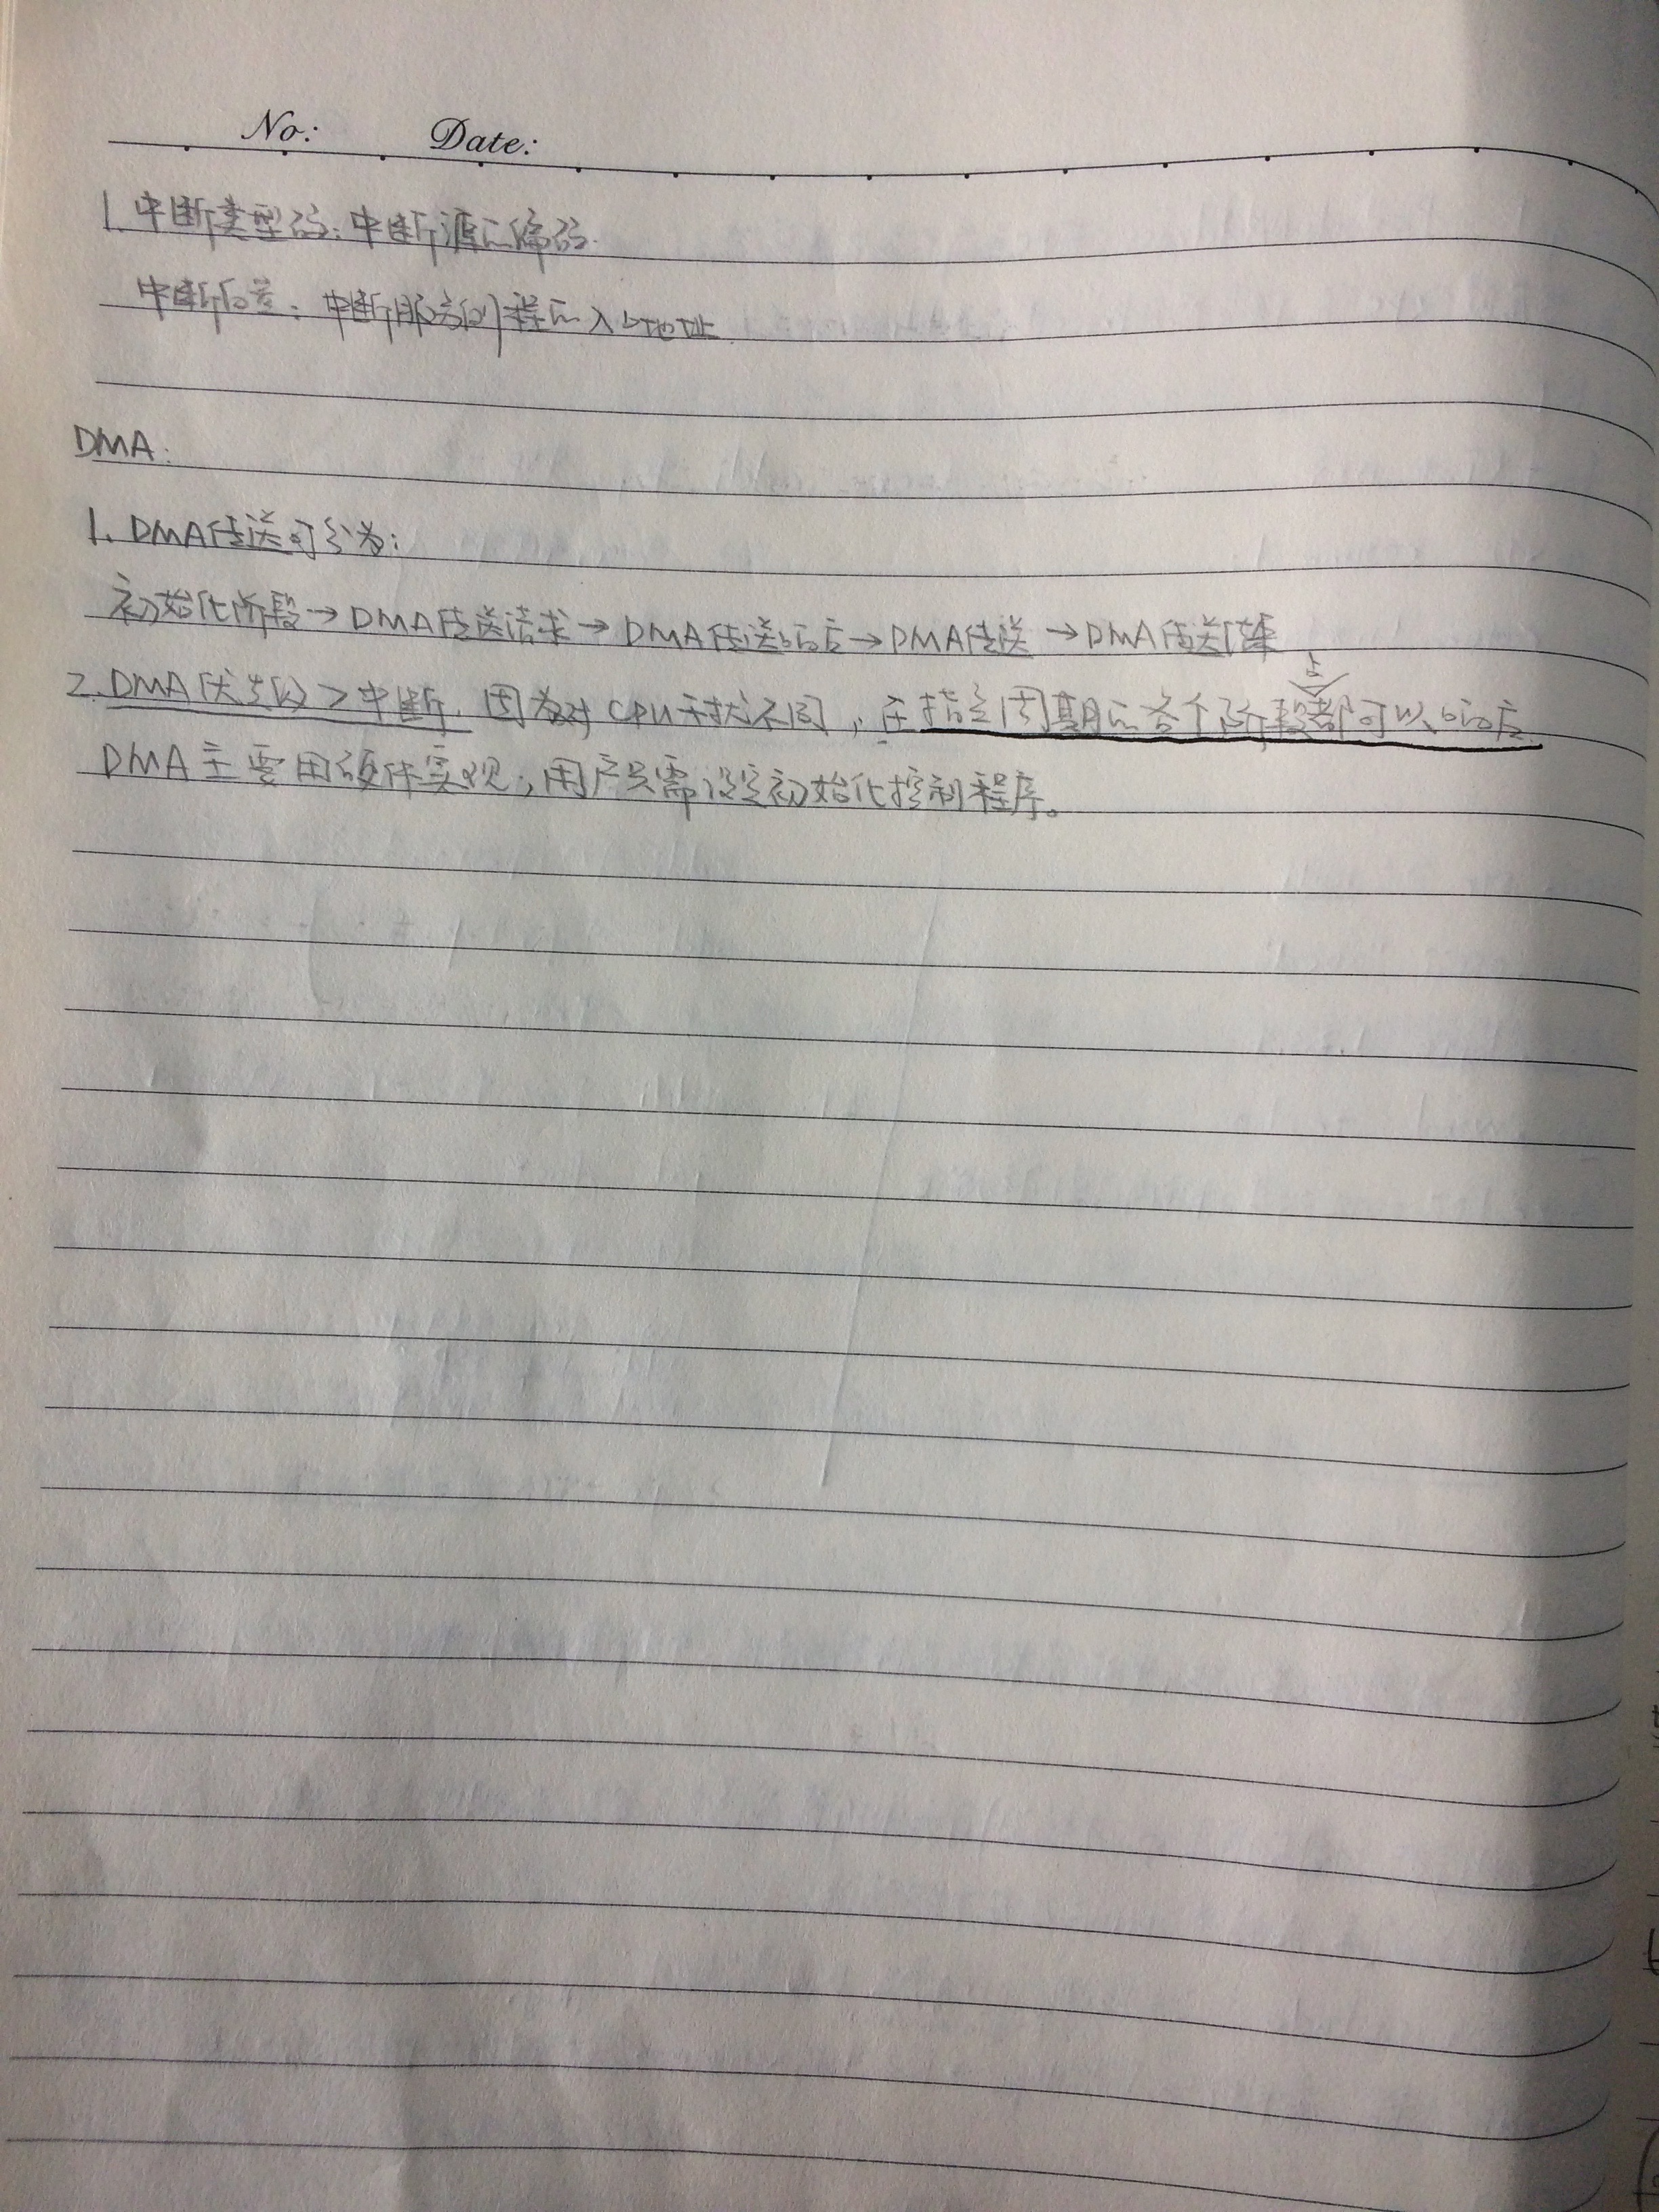 No: Date:
1. 中断类型码：中断源的编码.
中断向量：中断服务例程的入口地址
DMA:
1. DMA传送可分为：
初始化阶段→DMA传送请求→DMA传送响应→DMA传送→DMA传送结束
点
2. DMA优先级>中断，因为对CPU干扰不同，在指令周期的各个阶段都可以响应.
DMA主要用硬件实现，用户只需设定初始化控制程序。